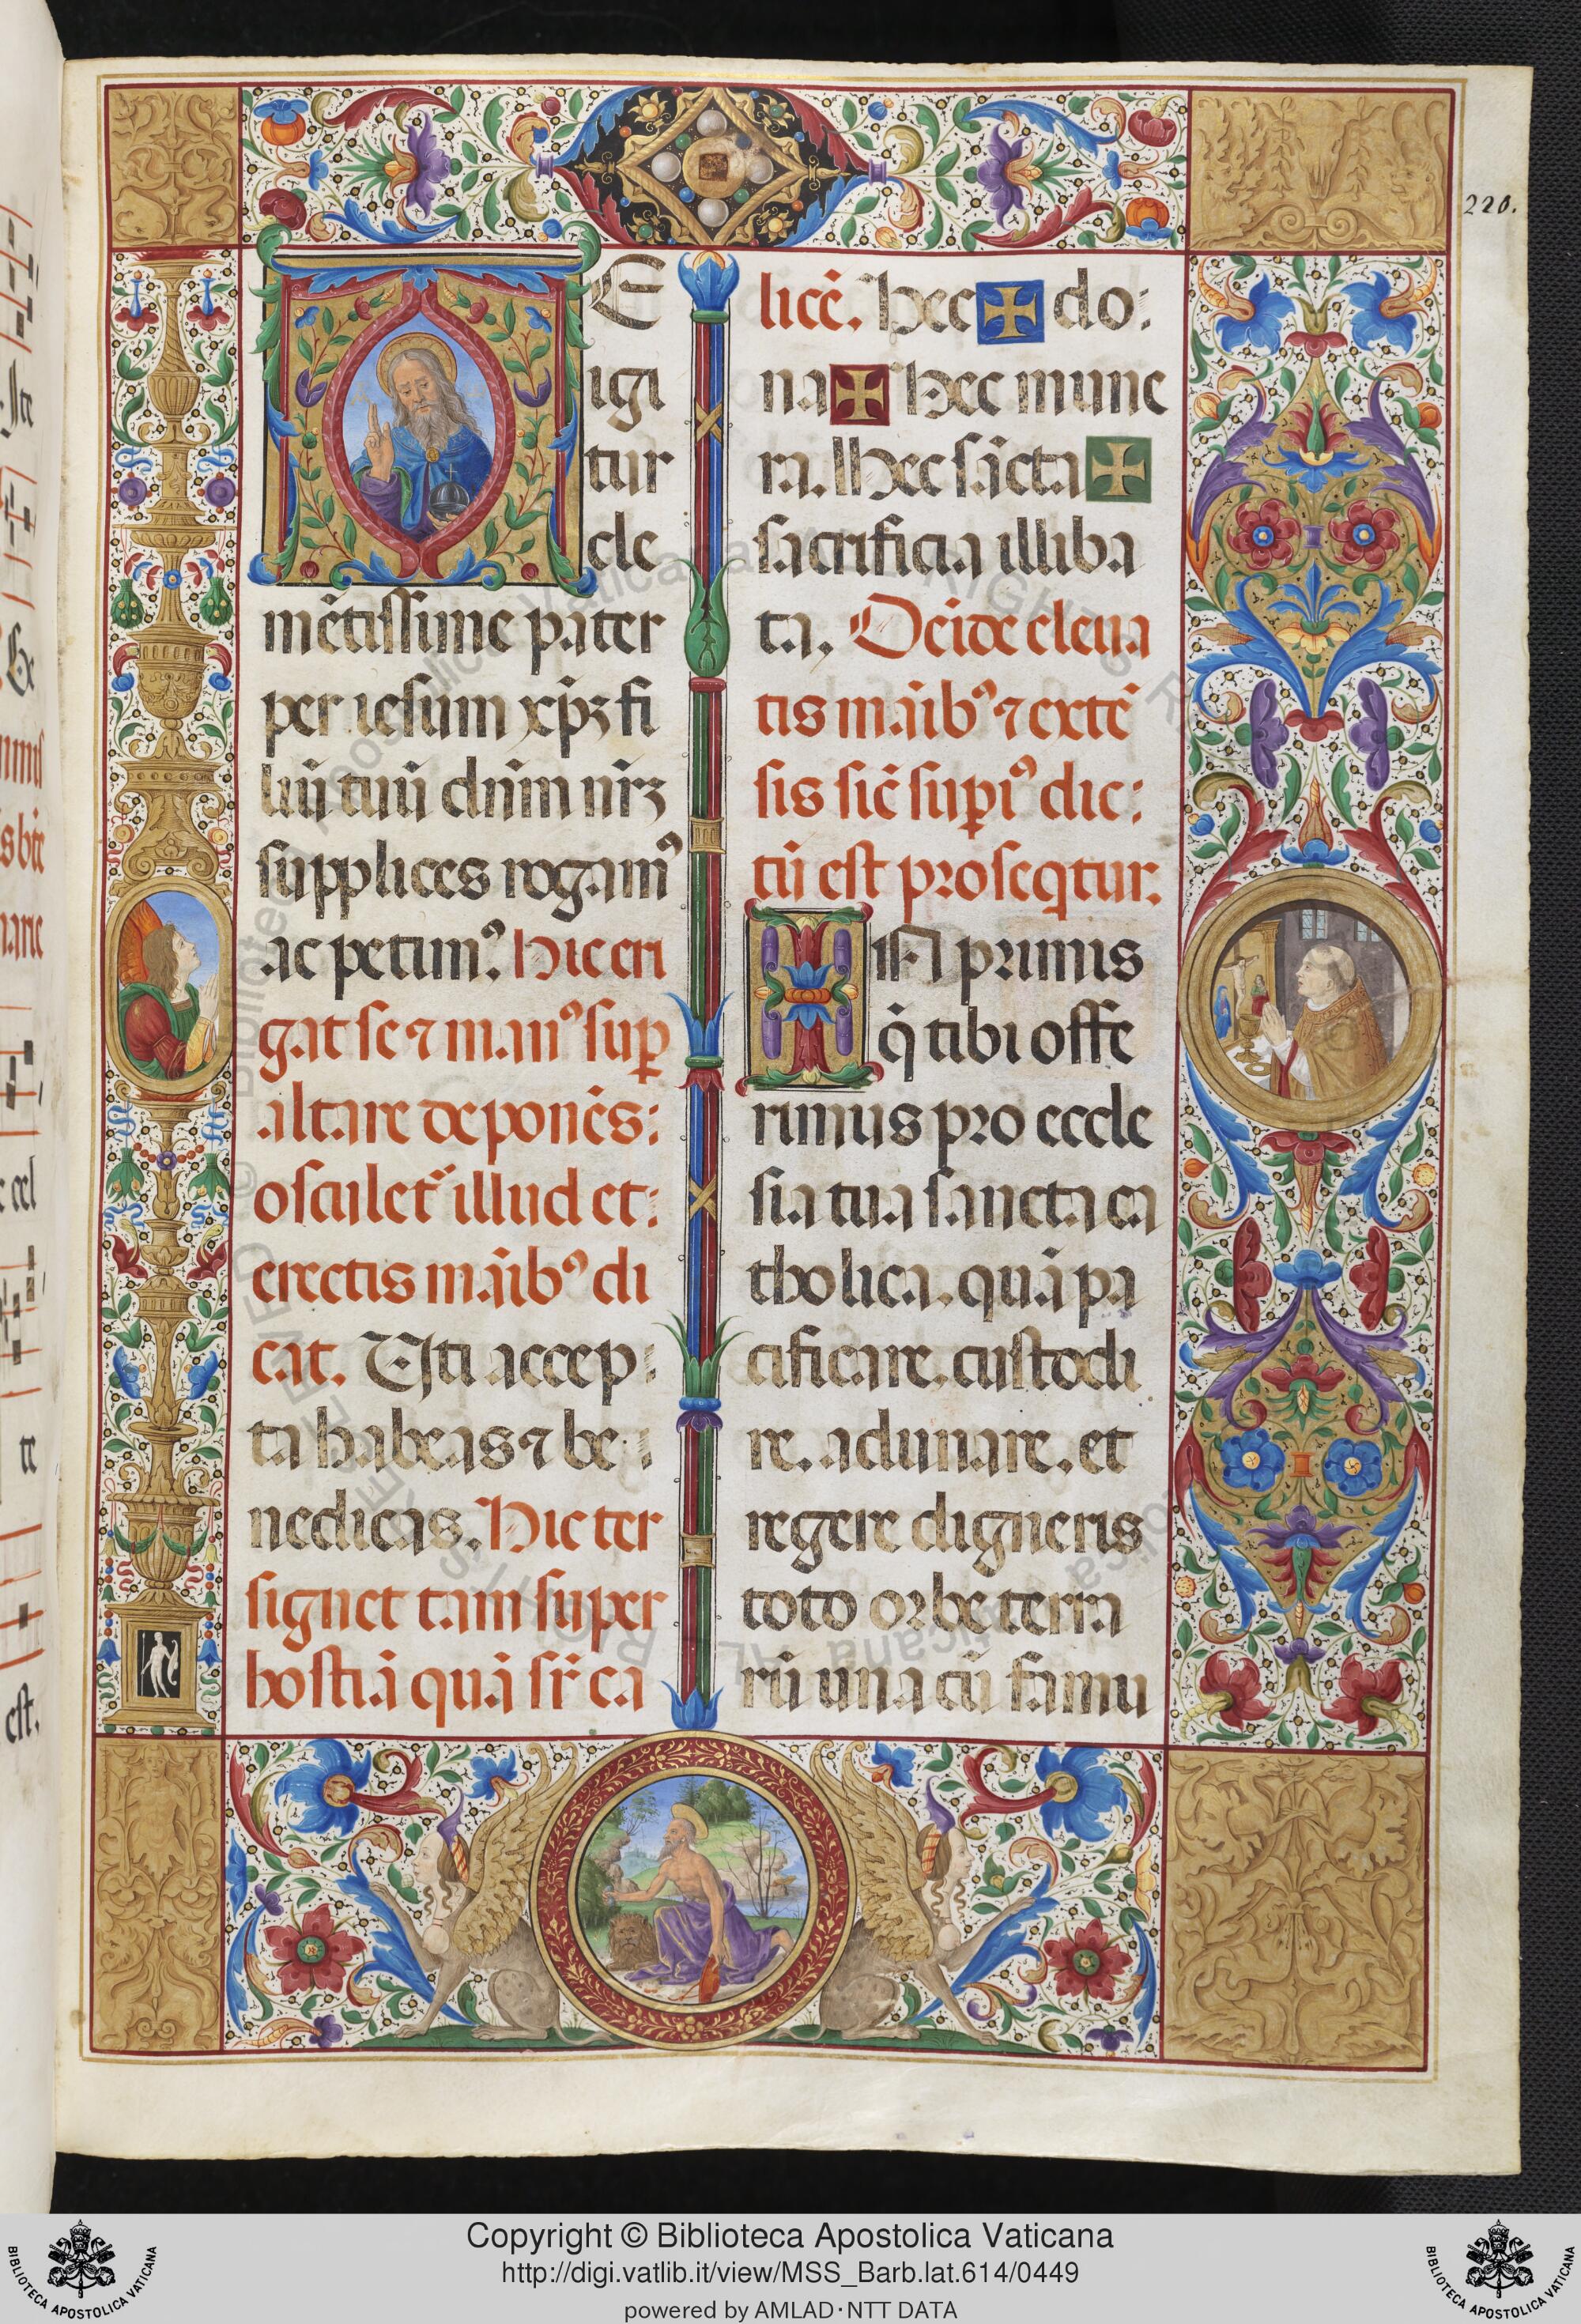 220.
TE
igi
tur
cle
mētissime pater
per iesum xp̄ꝫ fi
liū tuū dn̄m nr̄ꝫ
supplices rogamꝰ
ac petimꝰ. Hic eri
gat se ⁊ manꝰ suꝑ
altare deponēs:
osculet᷑ illud et:
erectis māibꝰ di
cat. Uti accep:
ta habeas ⁊ be:
nedicas. Hic ter
signet tam super
hostiā quā sr̄ ca
licē. Hec ✠ do:
na ✠ Hec mune
ra. Hec sācta ✠
sacrificia illiba
ta. Deīde eleua
tis māibꝰ ⁊ extē
sis sic̄ suꝑiꝰ dic:
tū est proseqtur.
IN primis
q̄ tibi offe
rimus pro eccle
sia tua sancta ca
tholica. quā pa
cificare. custodi
re. adunare. et
regere digneris
toto orbe terra
rū una cū famu
Copyright © Biblioteca Apostolica Vaticana
http://digi.vatlib.it/view/MSS_Barb.lat.614/0449
powered by AMLAD·NTT DATA
BIBLIOTECA APOSTOLICA VATICANA
BIBLIOTECA APOSTOLICA VATICANA